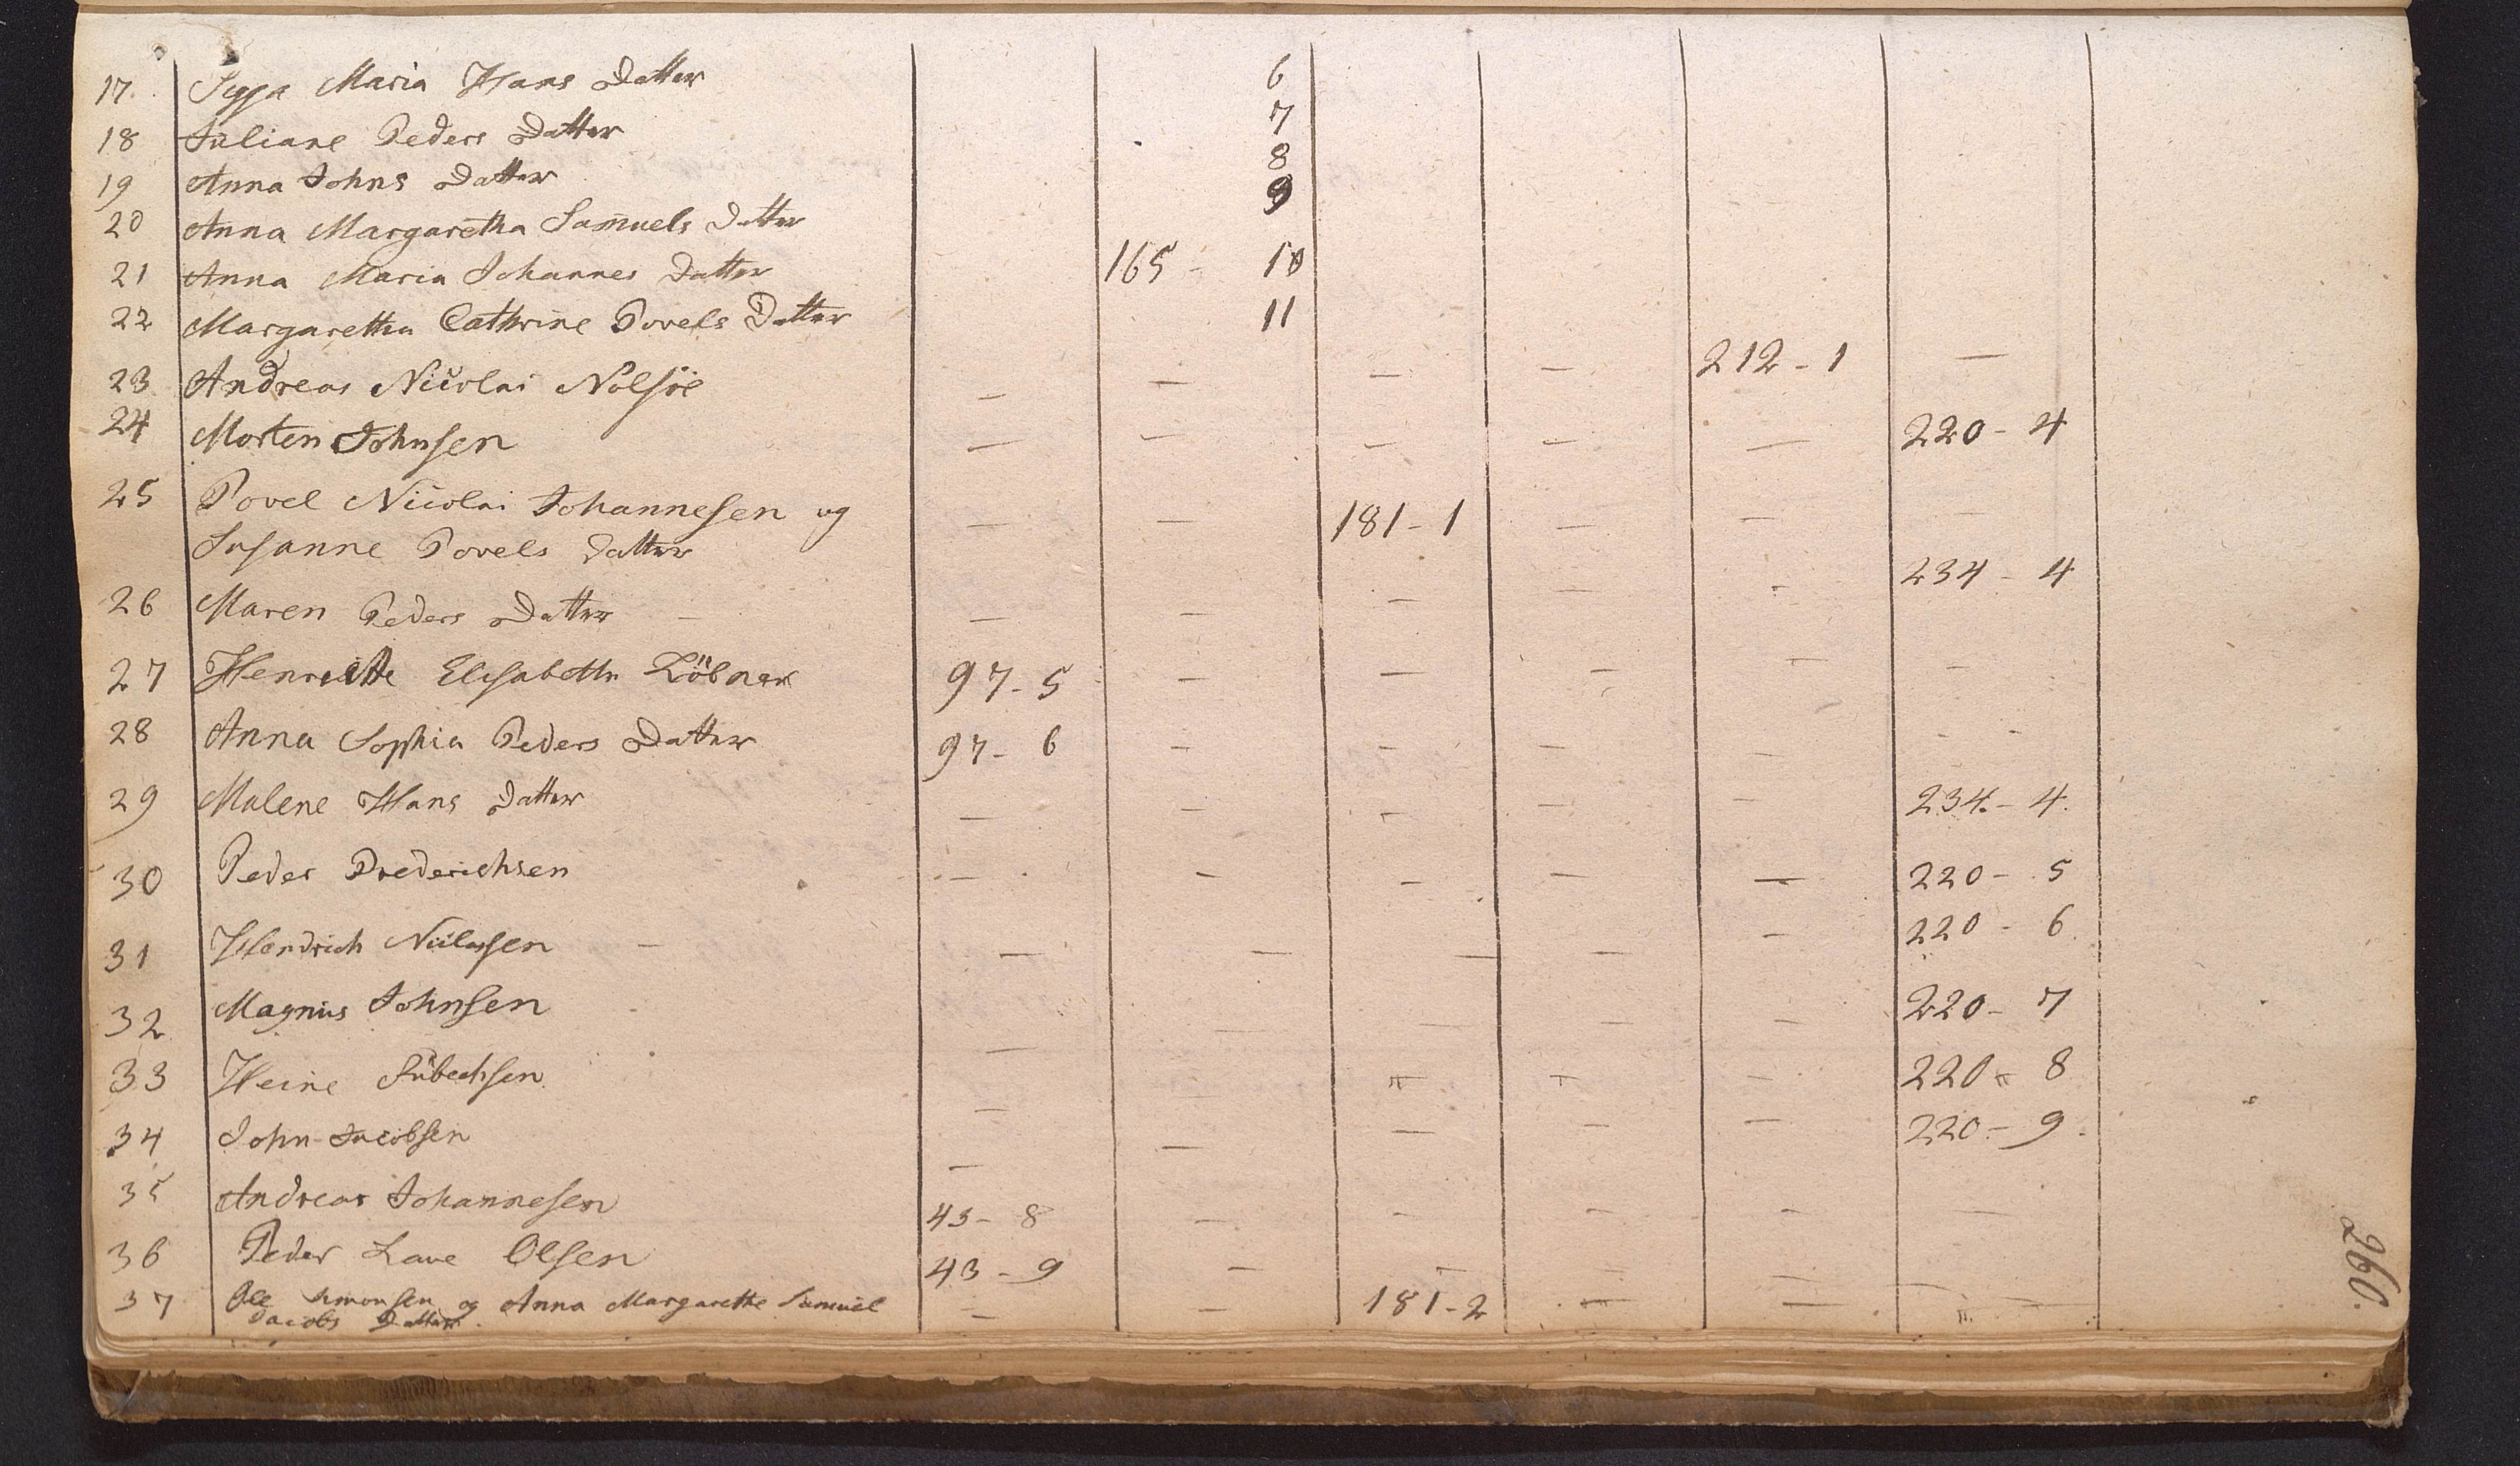 17. Maria Hans Datter 6
18 Juliane Peders Datter 7
19 Anna Johns Datter 8
20 Anna Margaretha Samuels Datter 9
21 Anna Maria Johannes Datter 165 - 10
22 Margaretha Cathrine Povels Datter 11
23 Andreas Nicolai Nolsöe — — — — 212 - 1 —
24 Morten Johnsen — — — — — 220 - 4
25 Povel Nicolai Johannesen og — — 181 - 1 — — —
Susanne Povels Datter
26 Maren Peders Datter — — — — — — 234 - 4
27 Henriette Elisabeth Löbner 97 - 5 — — — — —
28 Anna Sophia Peders Datter 97 - 6 — — — — - -
29 Malene Hans Datter — — — — — 234 - 4.
30 Peder Drederichsen — — — — — 220 - 5
31 Hendrich Niilssen — — — — — — 220 - 6.
32 Magnus Johnsen — — — — — 220 - 7
33 Heine — — — — 220 - 8
34 John Jacobsen — — — — — 220 - 9.
35 Andreas Johannesen 43 - 8 — — — — —
36 Peder Lave Olsen 43 - 9 — — — — —
37 Ole Simonsen og Anna Margarethe Samuel — — 181 - 2 — — —
Jacobs Datter.
260.